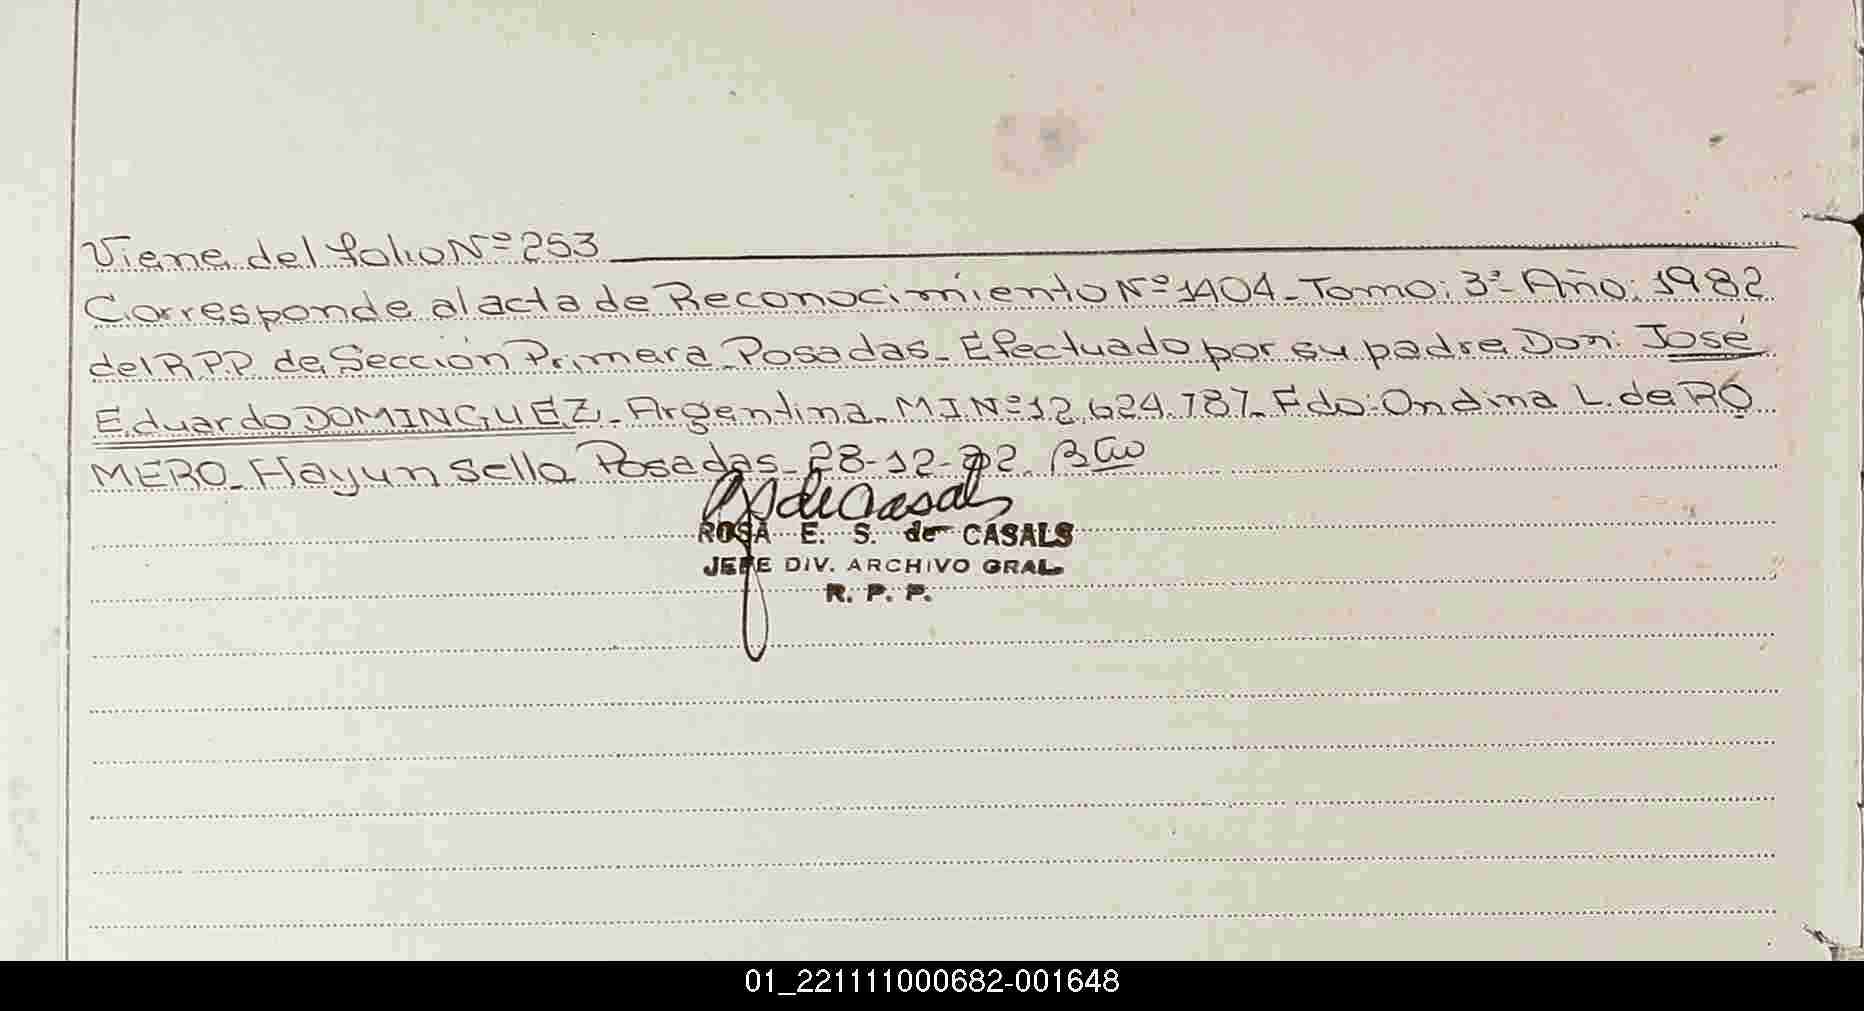 Viene del folio Nº 253
Corresponde al acta de Reconocimiento Nº 1404 - Tomo: 3º - Año: 1982
del R.P.P. de Sección Primera - Posadas - Efectuado por su padre Don: José
Eduardo DOMINGUEZ - Argentina - M.I. Nº 12.624.787 - Fdo: Ondina L. de RO
MERO - Hay un sello Posadas - 28-12-82
ROSA E. S. de CASALS
JEFE DIV. ARCHIVO GRAL.
R. P. P.
01_221111000682-001648